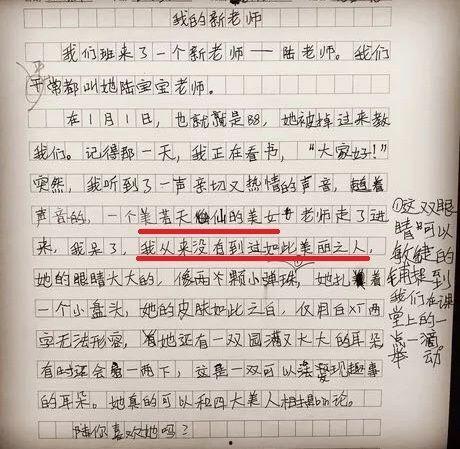 我的新老师
我们班来了一个新老师——陆老师。我们
平常都叫她陆宝宝老师。
在1月1日，也就是88，她被掉过来教
我们。记得那一天，我正在看书，“大家好！”
突然，我听到了一声亲切又热情的声音，趁着
声音的，一个美若天仙的美女老师走了进
来，我呆了，我从来没有到过如此美丽之人，
她的眼睛大大的，像两个颗小弹珠，她扎着
一个小盘头，她的皮肤如此之白，仅用白X丁两
字无法形容，有她还有一双圆满又大大的耳朵
有时还会一两下，这是一双可以发现趣事
的耳朵。她真的可以和四大美人相提论。
陆你喜欢她吗？
①这双眼
睛可以
敏捷的
捕捉到
我们在课
堂上的一
点一滴
举动